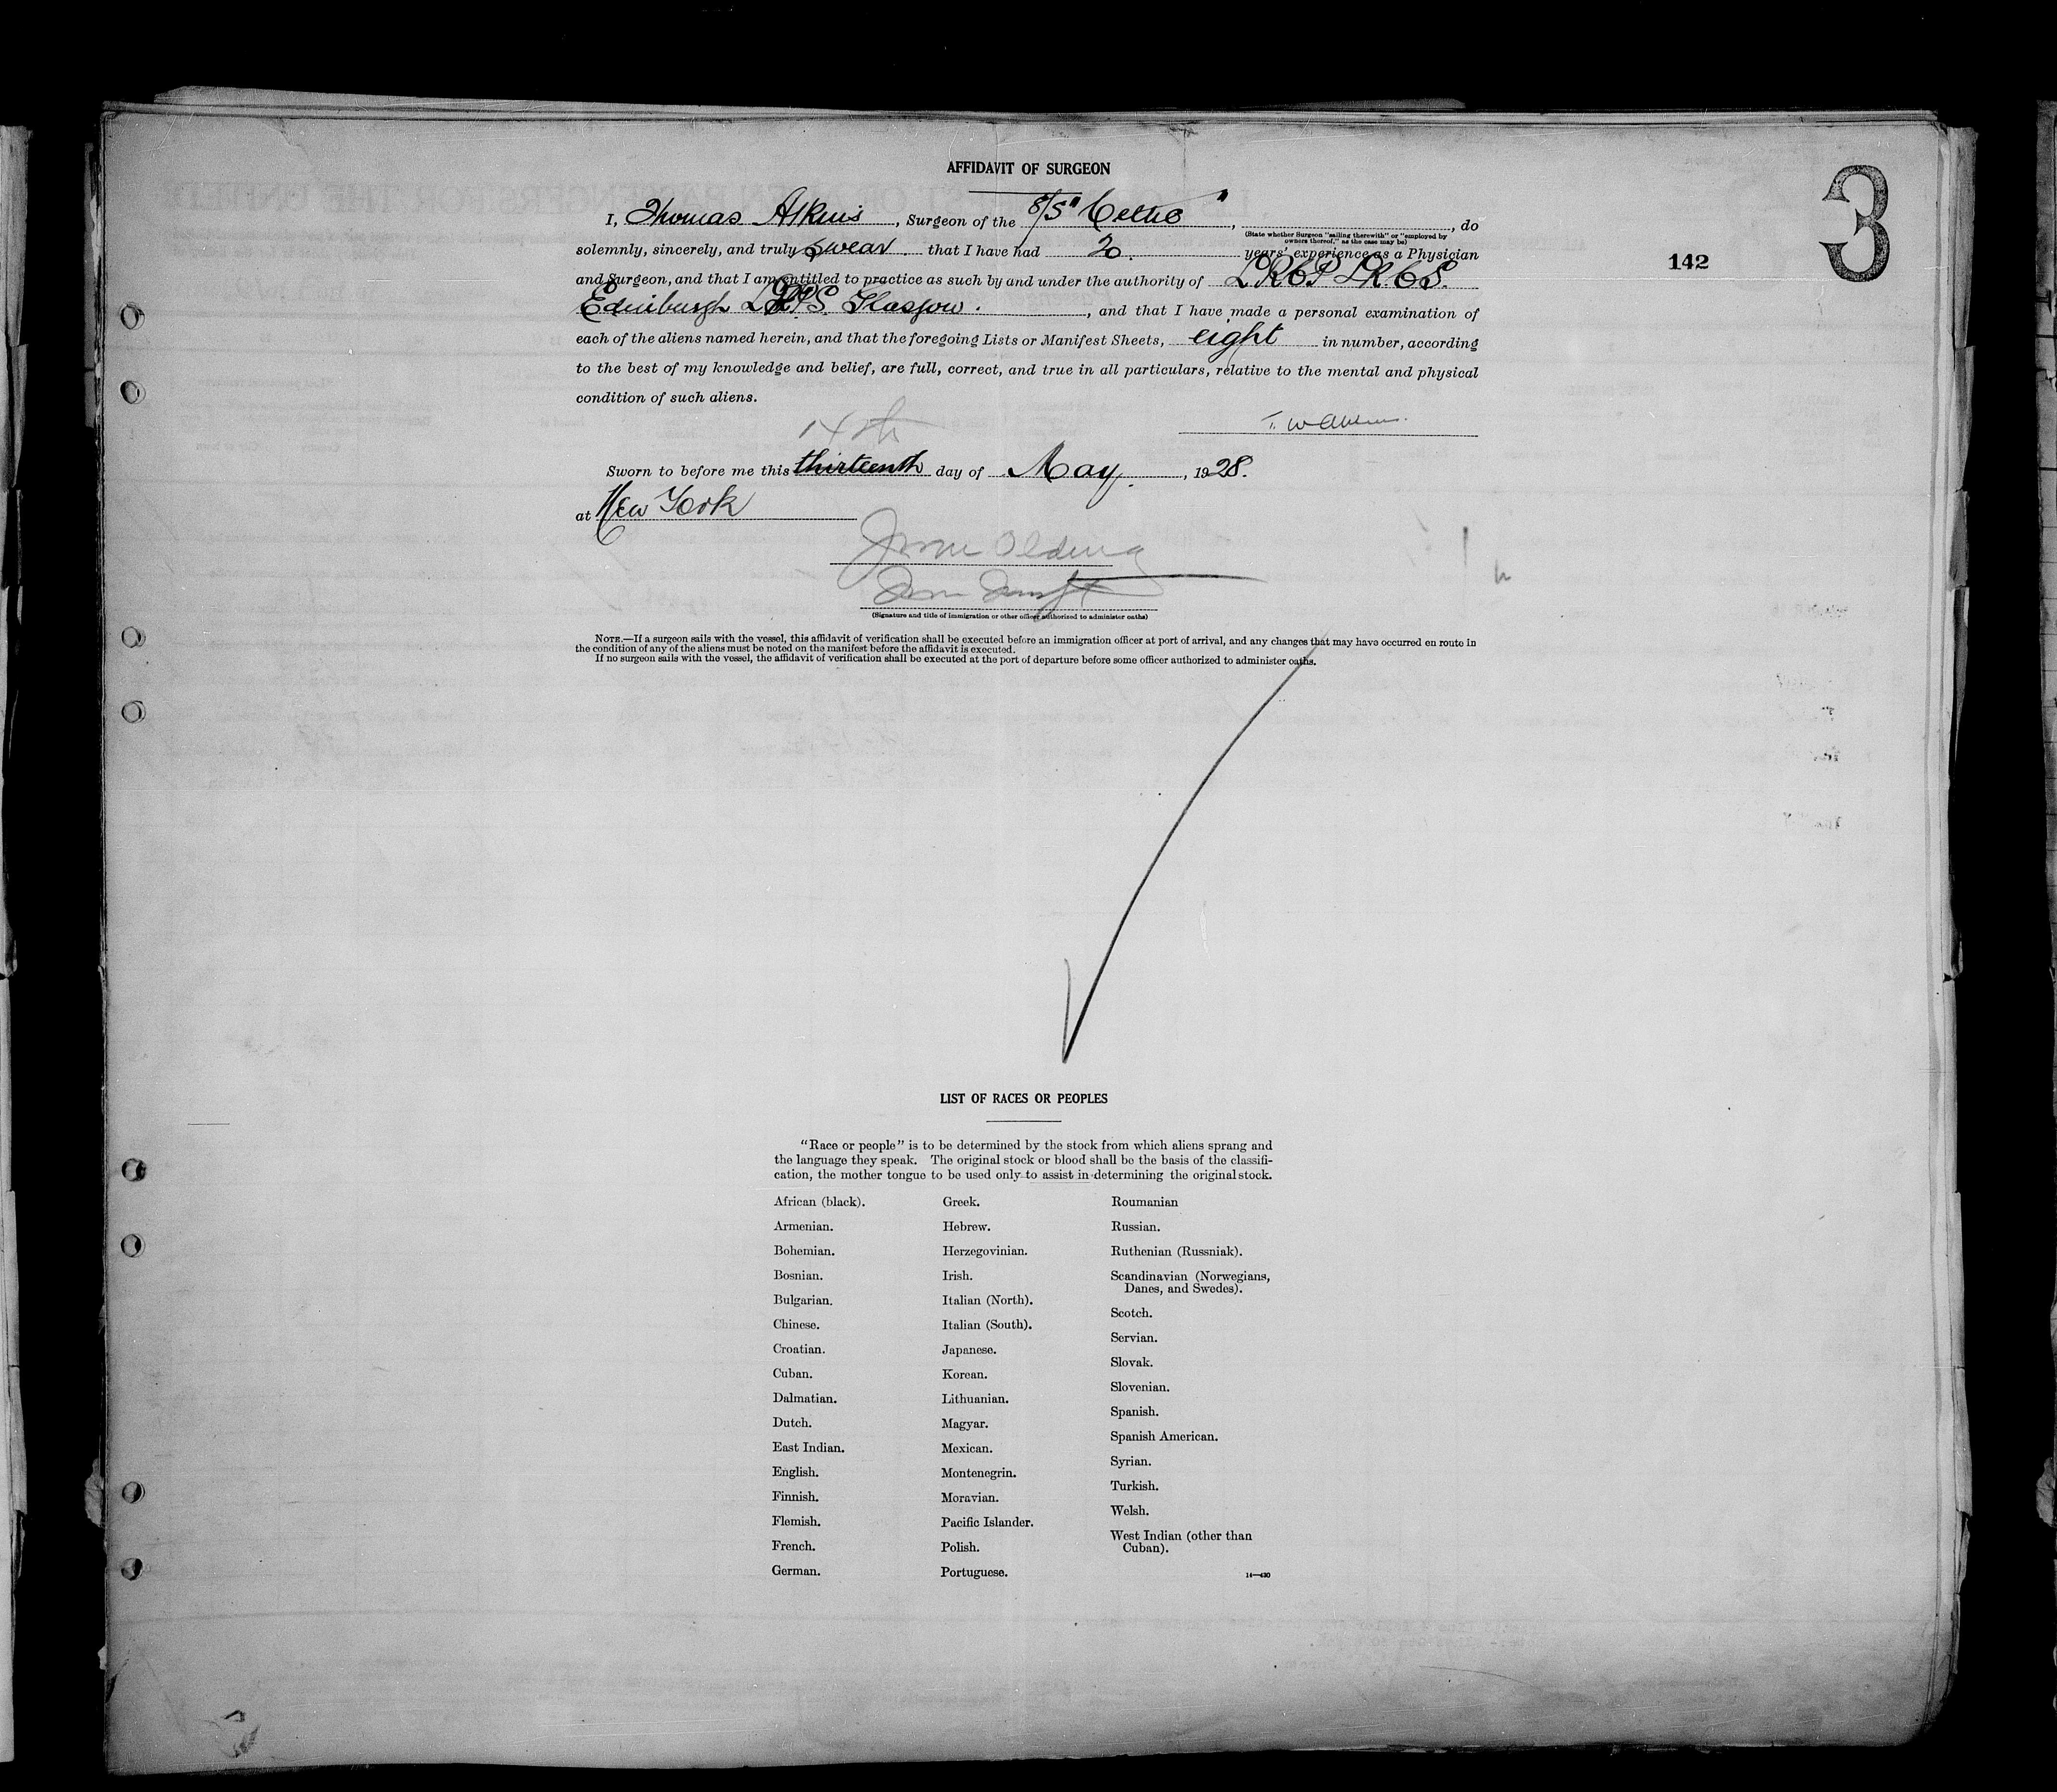 AFFIDAVIT OF SURGEON
3
142
I, Thomas Atkins, Surgeon of the S/S "Celtic", , do
(State whether Surgeon "sailing therewith" or "employed by owners thereof," as the case may be)
solemnly, sincerely, and truly swear that I have had 20. years' experience as a Physician
and Surgeon, and that I am entitled to practice as such by and under the authority of LRCP LRCS.
Edinburgh Glasgow. , and that I have made a personal examination of
each of the aliens named herein, and that the foregoing Lists or Manifest Sheets, eight in number, according
to the best of my knowledge and belief, are full, correct, and true in all particulars, relative to the mental and physical
condition of such aliens.
T. W Atkins.
14th
Sworn to before me this thirteenth day of May, 1928.
at New York
(Signature and title of immigration or other officer authorized to administer oaths)
NOTE.—If a surgeon sails with the vessel, this affidavit of verification shall be executed before an immigration officer at port of arrival, and any changes that may have occurred en route in
the condition of any of the aliens must be noted on the manifest before the affidavit is executed.
If no surgeon sails with the vessel, the affidavit of verification shall be executed at the port of departure before some officer authorized to administer oaths.
LIST OF RACES OR PEOPLES
"Race or people" is to be determined by the stock from which aliens sprang and
the language they speak. The original stock or blood shall be the basis of the classifi-
cation, the mother tongue to be used only to assist in determining the original stock.
African (black).
Armenian.
Bohemian.
Bosnian.
Bulgarian.
Chinese.
Croatian.
Cuban.
Dalmatian.
Dutch.
East Indian.
English.
Finnish.
Flemish.
French.
German.
Greek.
Hebrew.
Herzegovinian.
Irish.
Italian (North).
Italian (South).
Japanese.
Korean.
Lithuanian.
Magyar.
Mexican.
Montenegrin.
Moravian.
Pacific Islander.
Polish.
Portuguese.
Roumanian
Russian.
Ruthenian (Russniak).
Scandinavian (Norwegians,
Danes, and Swedes).
Scotch.
Servian.
Slovak.
Slovenian.
Spanish.
Spanish American.
Syrian.
Turkish.
Welsh.
West Indian (other than
Cuban).
14—430